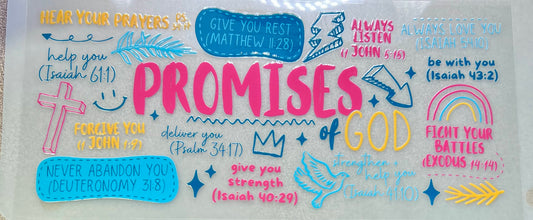 HEAR YOUR PRAYERS
help you
(Isaiah 61:1)
GIVE YOU REST
(MATTHEW 11:28)
ALWAYS
LISTEN
(1 JOHN 5:15)
ALWAYS LOVE YOU
(ISAIAH 54:10)
be with you
(Isaiah 43:2)
PROMISES
of GOD
FORGIVE YOU
(1 JOHN 1:9)
deliver you
(Psalm 34:17)
FIGHT YOUR
BATTLES
(EXODUS 14:14)
NEVER ABANDON YOU
(DEUTERONOMY 31:8)
give you
strength
(Isaiah 40:29)
strengthen &
help you
(Isaiah 41:10)